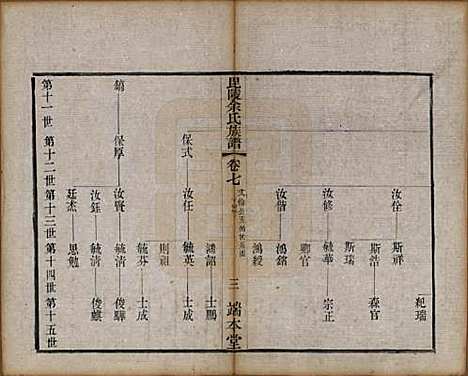 紀瑞
汝佺 斯祥
斯浩 森官
斯瑞
汝修 毓華 宗正
聊官
汝偕 鴻銘
鴻綬
毘陵余氏族譜 卷七 三 端本堂
鴻詔 士鵬
保式 汝任 毓英 士成
則祖
毓芬 士成
鎬 保厚 汝賢 毓清 俊驊
汝鈺 毓清 俊麒
廷杰 思勉
第十一世 第十二世 第十三世 第十四世 第十五世